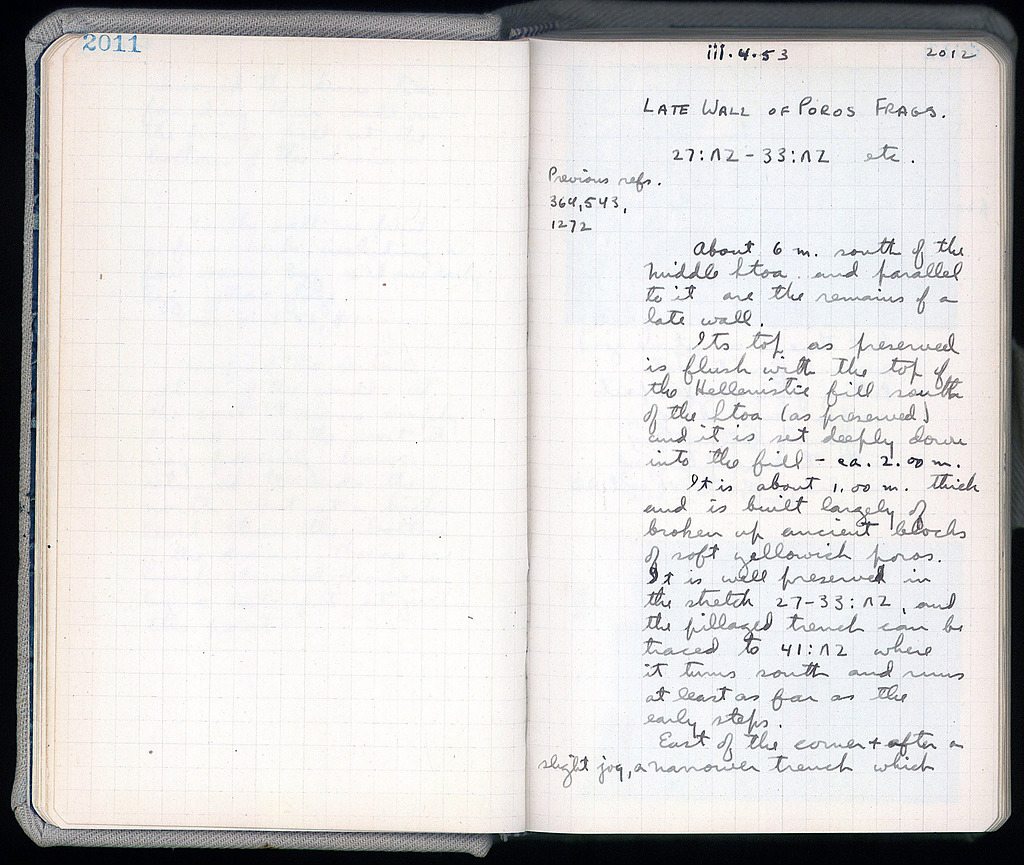 2011
iii.4.53
2012
LATE WALL OF POROS FRAGS.
27:ΛΖ-33:ΛΖ etc.
Previous refs.
364, 543,
1272
About 6 m. south of the
Middle Stoa and parallel
to it are the remains of a
late wall.
Its top as preserved
is flush with the top of
the Hellenistic fill south
of the Stoa (as preserved)
and it is set deeply down
into the fill - ca. 2.00 m.
It is about 1.00 m. thick
and is built largely of
broken up ancient blocks
of soft yellowish poros.
It is well preserved in
the stretch 27-33:ΛΖ, and
the pillaged trench can be
traced to 41:ΛΖ where
it turns south and runs
at least as far as the
early steps.
East of the corner + after a
slight jog, a narrower trench which